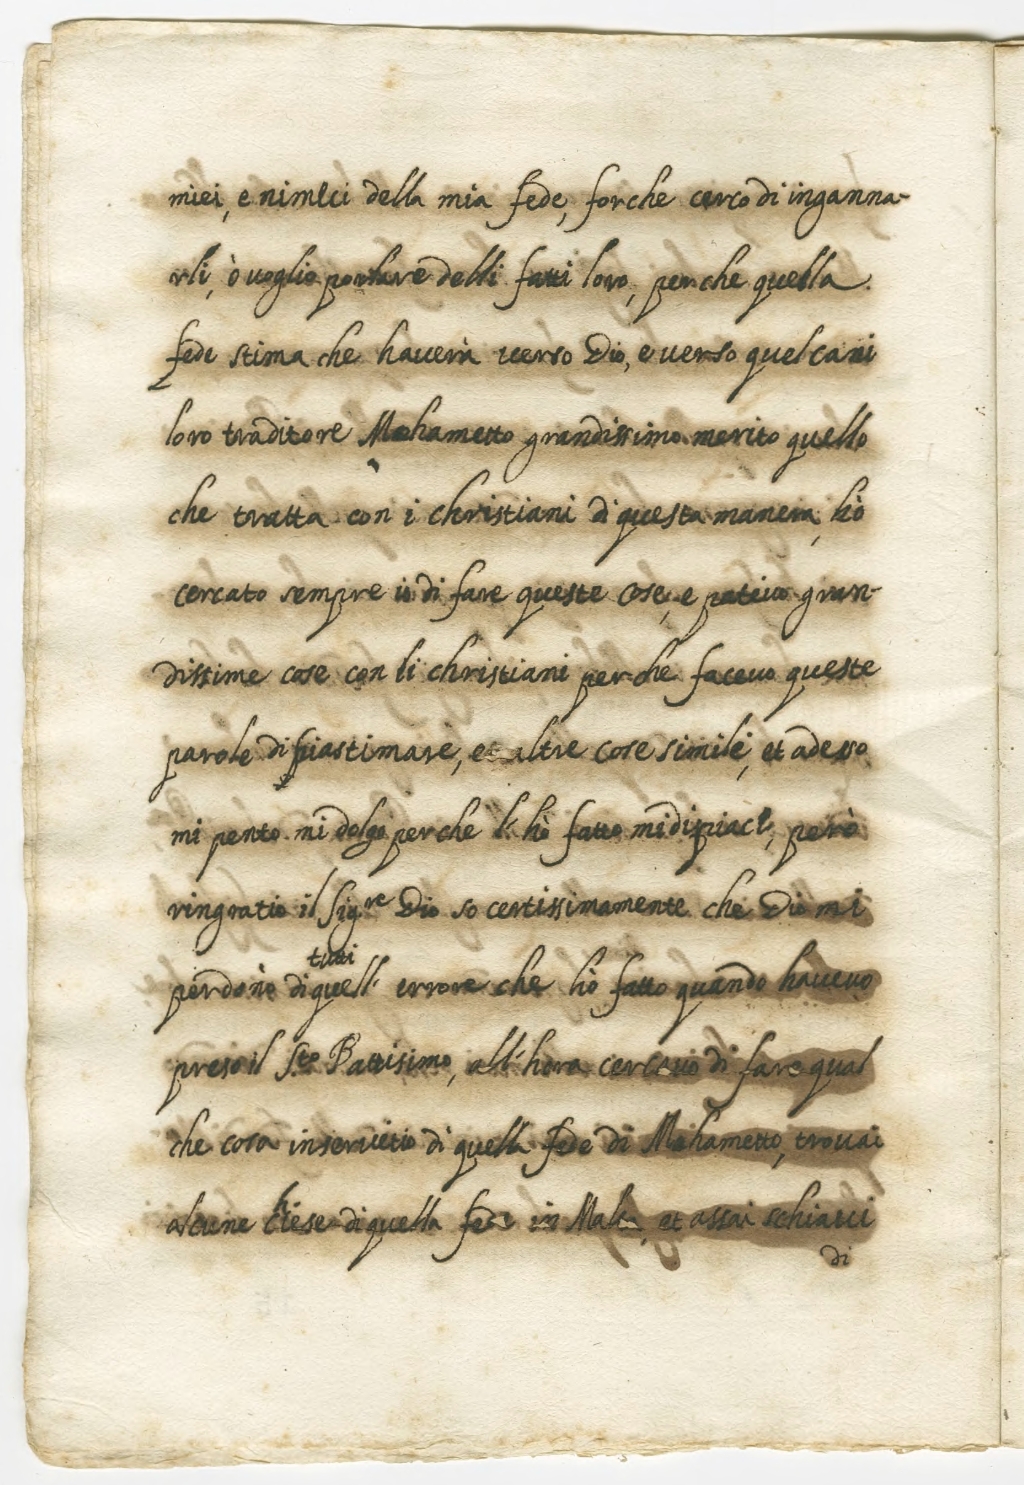 miei, e nimici della mia fede, forche cerco di inganna-
rli, ò voglio portare delli fatti loro, perche quella
fede stima che haverà verso Dio, e verso quel cani
loro traditore Mahametto grandissimo merito quello
che tratta con i christiani di questa manera, hò
cercato sempre io di fare queste cose, e pativo gran-
dissime cose con li christiani perche facevo queste
parole di piastimare, et altre cose simile, et adesso
mi pento mi dolgo perche l'hò fatto mi dispiace, però
ringratio il Sig.re Dio so certissimamente che Dio mi
perdonò di tutti quell' errore che hò fatto quando havevo
preso il S.to Battisimo, all'hora cercavo di fare qual
che cosa in servitio di quella fede di Mahametto, trovai
alcune chiese di quella fede in Malta, et assai schiavi
di